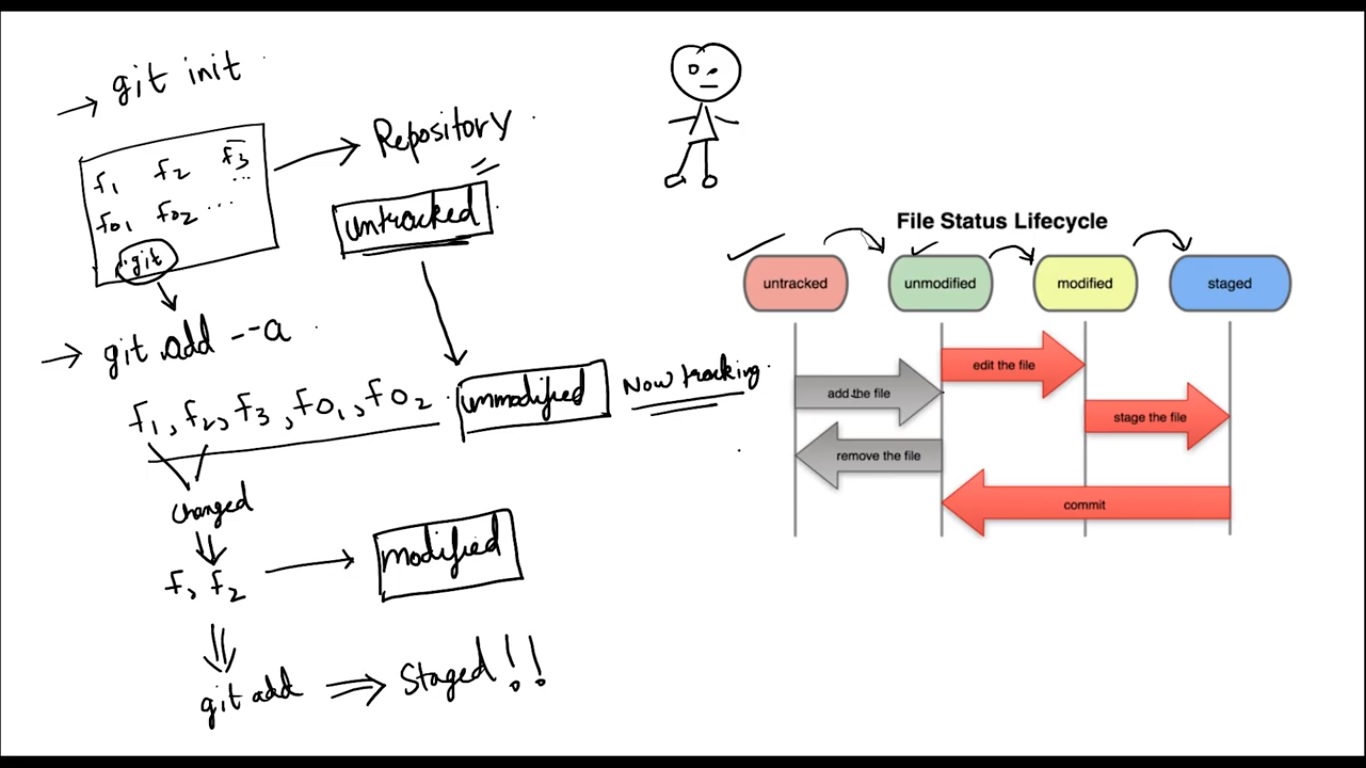 → git init
f1 f2 f3 ...
f01 f02 ...
.git
→ Repository
untracked
→ git add --a
f1, f2, f3, f01, f02
unmodified
Now tracking.
changed
f, f2
modified
git add ⇒ Staged!!
File Status Lifecycle
untracked unmodified modified staged
edit the file
add the file
stage the file
remove the file
commit